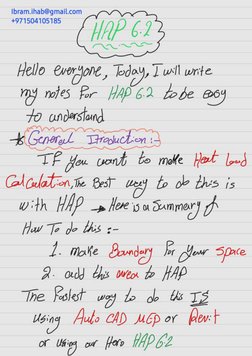 ibram.ihab@gmail.com
+971504105185
HAP 6.2
Hello everyone, Today, I will write
my notes for HAP 6.2 to be easy
to understand
* General Itroduction :-
IF you want to make Heat Load
Calculation, The Best way to do this is
with HAP → Here is a Summary of
How To do this :-
1. make Boundary for your space
2. add this area to HAP
The Fastest way to do this IS
using Auto CAD MEP or Revit
or using our Hero HAP 6.2